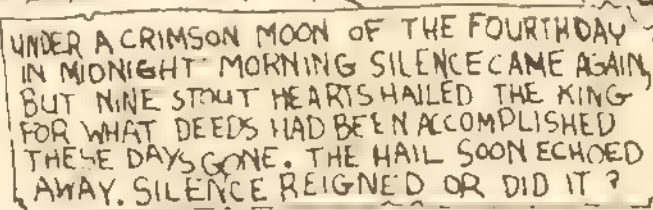 UNDER A CRIMSON MOON OF THE FOURTH DAY
IN MIDNIGHT MORNING SILENCE CAME AGAIN,
BUT NINE STOUT HEARTS HAILED THE KING
FOR WHAT DEEDS HAD BEEN ACCOMPLISHED
THESE DAYS GONE. THE HAIL SOON ECHOED
AWAY. SILENCE REIGNED OR DID IT?